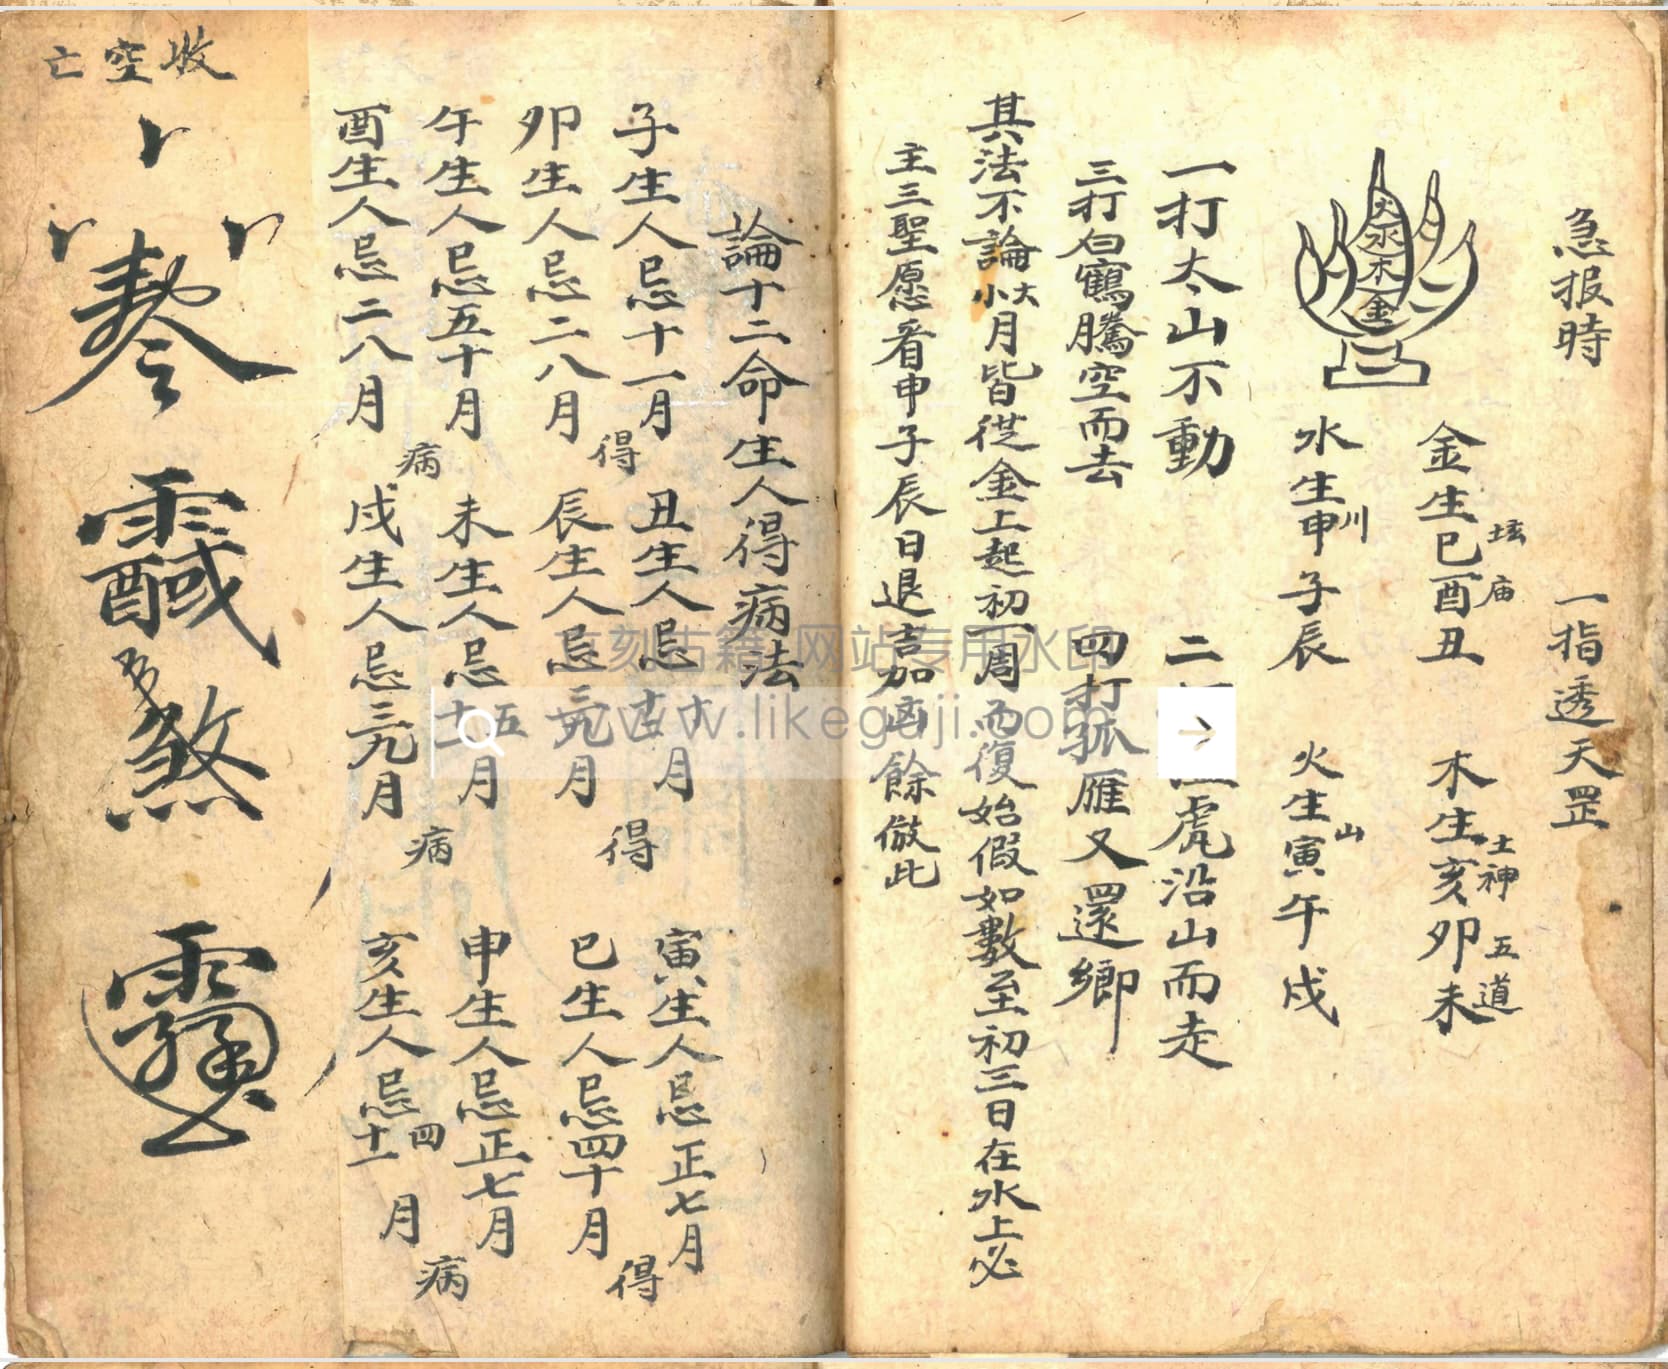 急报時　一指透天罡
金生巳酉丑　木生亥卯未
坛　庙　土神　五道
水生申子辰　火生寅午戌
川　山
火
水
木
金
一打太山不動　二　虎沿山而走
三打白鶴騰空而去　四打孤雁又還鄉
其法不論大小月皆從金上起初一周而復始假如數至初三日在水上必
主三聖愿看申子辰日退吉加凶餘倣此
論十二命生人得病法
子生人忌十一月　丑生人忌　十月　寅生人忌正七月
得　得　得
卯生人忌二八月　辰生人忌三九月　巳生人忌四十月
午生人忌五十月　未生人忌　五　月　申生人忌正七月
病　病　病
酉生人忌二八月　戌生人忌三九月　亥生人忌四十一月
收空亡
煞
首刻古籍 网站专用水印
www.likeguji.com